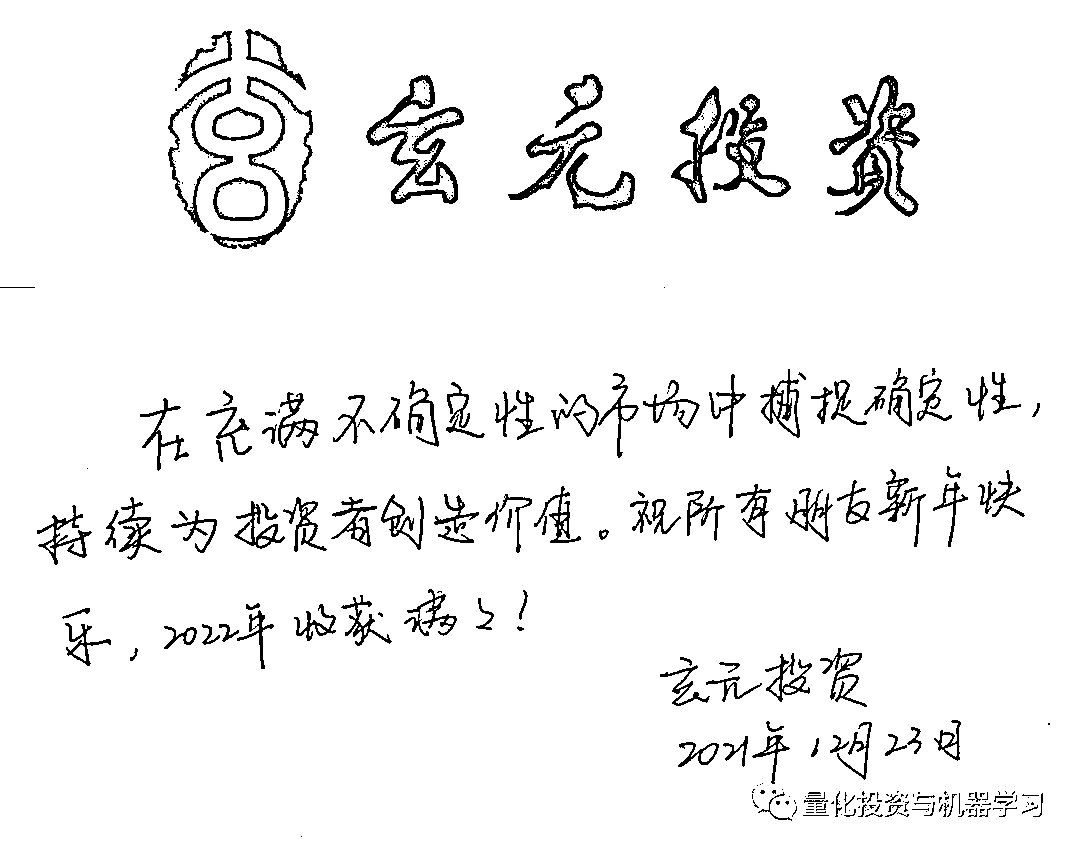 玄元投资
在充满不确定性的市场中捕捉确定性,
持续为投资者创造价值。祝所有朋友新年快
乐,2022年收获满々!
玄元投资
2021年12月23日
量化投资与机器学习